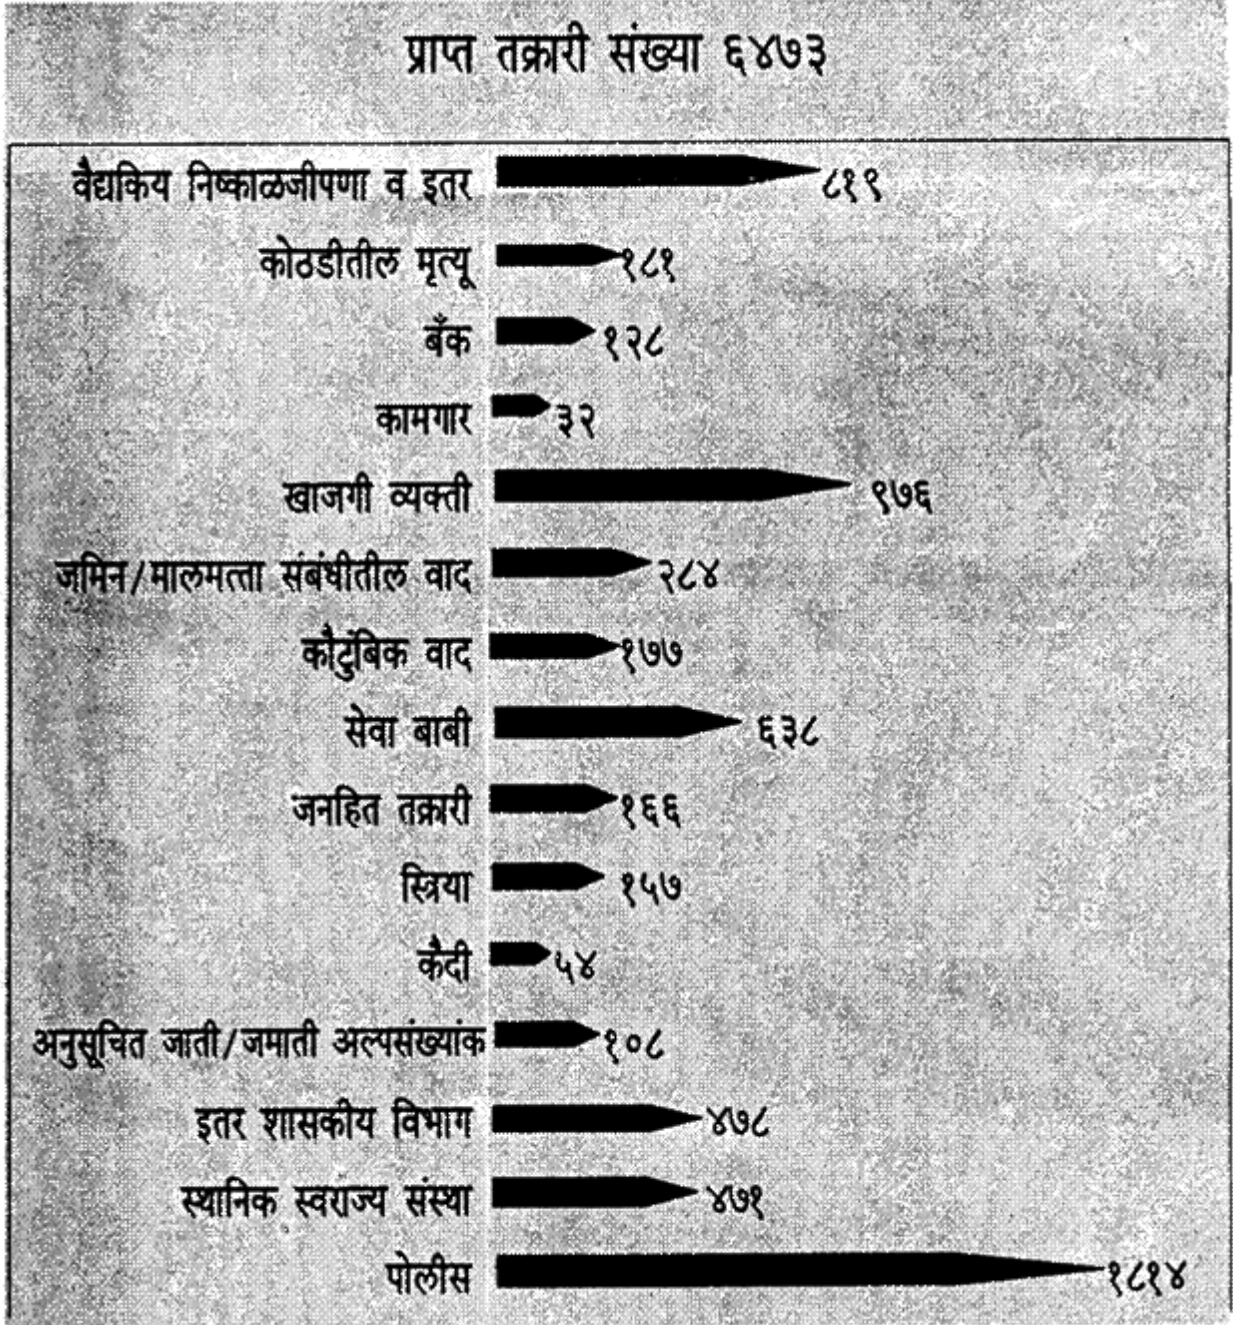 प्राप्त तक्रारी संख्या ६४७३
वैद्यकिय निष्काळजीपणा व इतर ८१९
कोठडीतील मृत्यू १८१
बँक १२८
कामगार ३२
खाजगी व्यक्ती ९७६
जमिन/मालमत्ता संबंधीतील वाद २८४
कौटुंबिक वाद १७७
सेवा बाबी ६३८
जनहित तक्रारी १६६
स्त्रिया १५७
कैदी ५४
अनुसूचित जाती/जमाती अल्पसंख्यांक १०८
इतर शासकीय विभाग ४७८
स्थानिक स्वराज्य संस्था ४७१
पोलीस १८१४